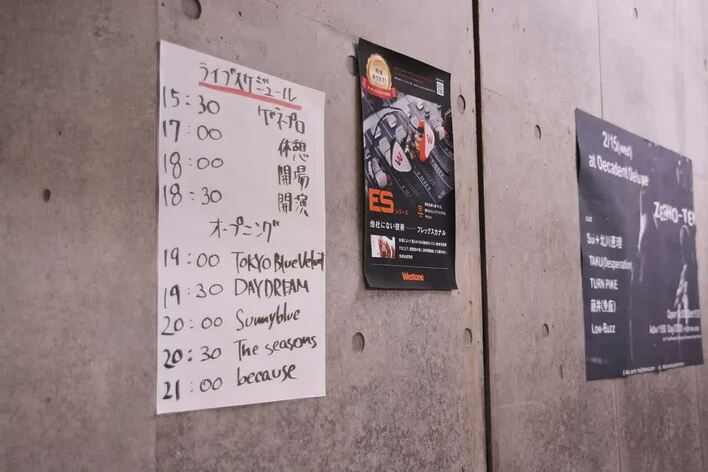 ライブスケジュール
15:30 ゲネプロ
17:00 休憩
18:00 開場
18:30 開演
オープニング
19:00 TOKYO Blue Velvet
19:30 DAYDREAM
20:00 Sunnyblue
20:30 The seasons
21:00 because
ES シリーズ
他社にない技術 フレックスカナル
Westone
2/15(wed)
at Decadent Deluxe
Sui+北川亜理
TAKU(Desperation)
TURN PIKE
Low-Buzz